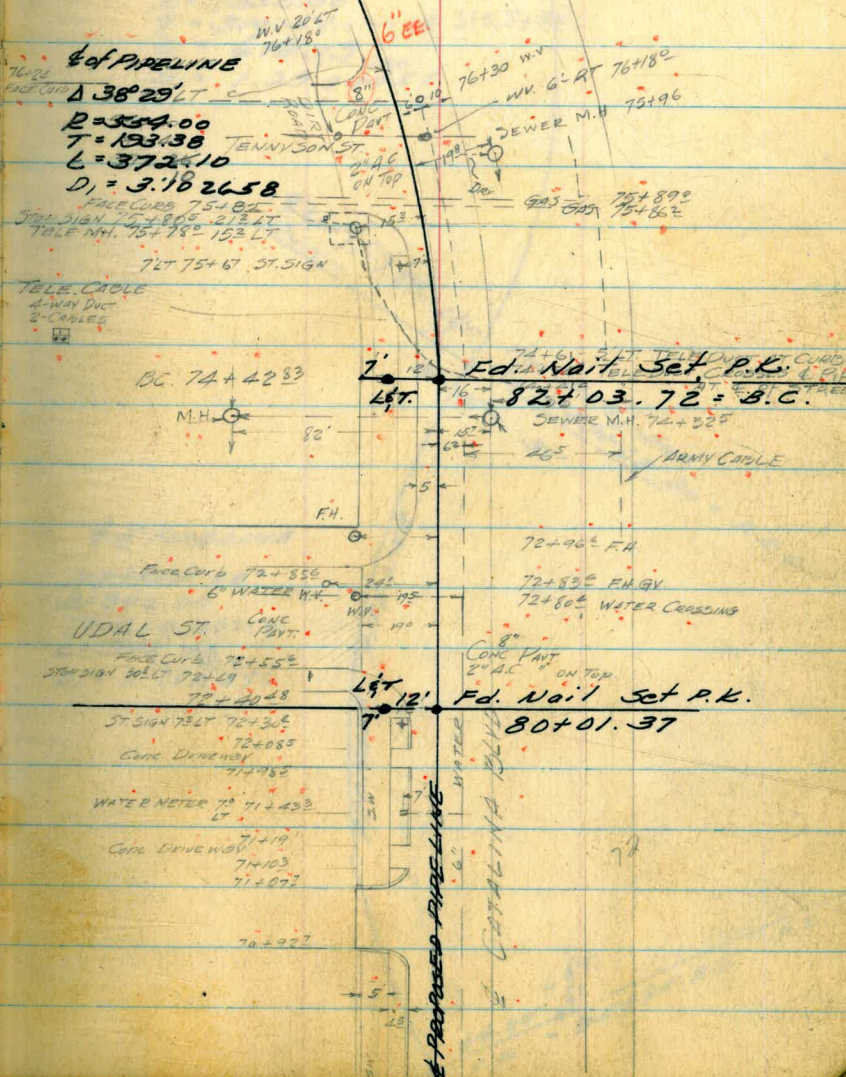 W.V 20' LT
76+18⁰
6" EE
℄ of PIPELINE
Δ 38° 29' LT
R = 554.00
T = 193.38
L = 372.10
D, = 3.102658
76+24
FACE CURB
DIRT
ROAD
8"
CONC
PAVT
2" A.C
ON TOP
TENNYSON ST.
76+30 W.V
W.V. 6' RT 76+18⁰
SEWER M.H 75+96
GAS 75+89⁰
GAS 75+86²
FACE CURB 75+82
STOP SIGN 75+80⁵ 21² LT
TELE M.H. 75+78⁰ 15² LT
15³
7' LT 75+67 ST. SIGN
TELE. CABLE
4-WAY DUCT
2-CABLES
BC. 74+42⁸³
7' 12'
L&T.
Fd. Nail Set P.K.
82+03.72 = B.C.
16
M.H.
82'
15²
SEWER M.H. 74+32⁵
46⁵
ARMY CABLE
5
F.H.
72+96⁶ F.H
Face Curb 72+85⁶
6" WATER W.V.
24²
W.V.
19⁵
72+83⁶ F.H. GV
72+80⁴ WATER CROSSING
UDAL ST.
CONC
PAVT.
19⁰
Face Curb 72+55⁶
STOP SIGN 30² LT 72+49
8"
CONC PAVT
2" A.C ON TOP
72+40⁴⁸
L&T
7' 12'
Fd. Nail Set P.K.
80+01.37
ST. SIGN 7³ LT 72+30⁴
72+08⁵
Conc Driveway
71+98²
WATER METER 7⁰ 71+43³
LT
S.W
7'
71+19'
Conc Driveway
71+10³
71+07²
70+92²
5'
4⁵
℄ PROPOSED PIPELINE
6" WATER
CATALINA BLVD
72